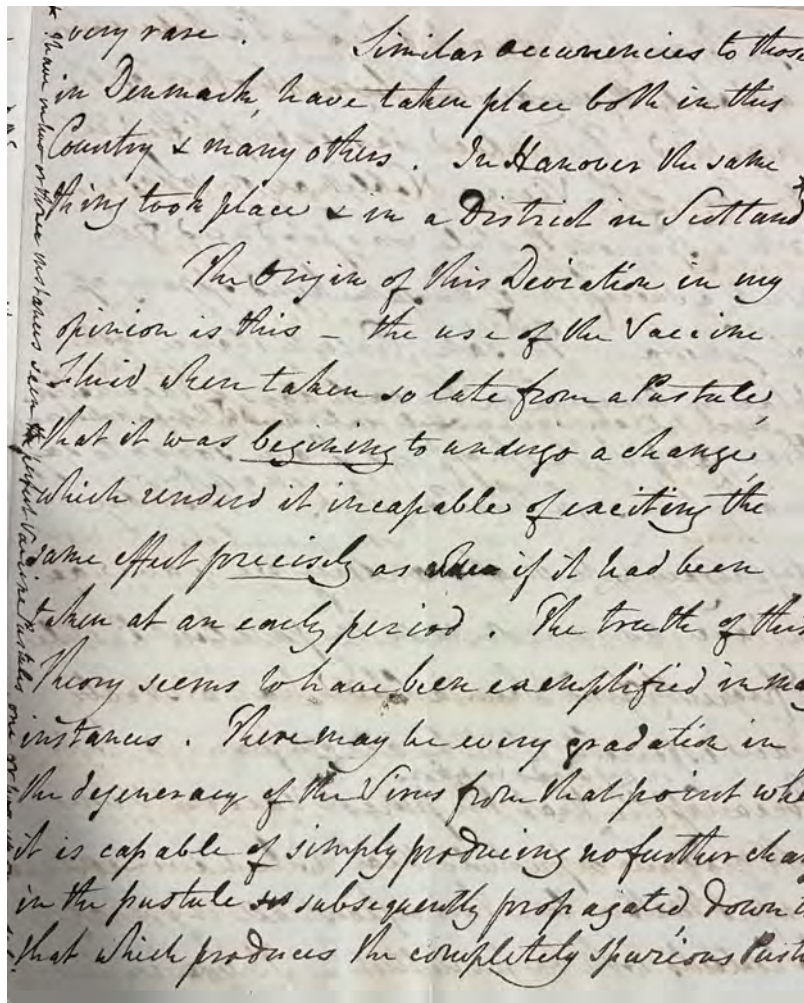 very rare. Similar occurrencies to those
in Denmark, have taken place both in this
Country & many others. In Hanover the same
thing took place & in a District in Scotland *
The Origin of this Deviation in my
opinion is this – the use of the Vaccine
Fluid when taken so late from a Pustule,
that it was begining to undergo a change,
which renderd it incapable of exciting the
same effect precisely as if it had been
taken at an early period. The truth of this
Theory seems to have been exemplified in
instances. There may be every gradation in
the degeneracy of the Virus from that point
it is capable of simply producing no further
in the pustule subsequently propagated down
that which produces the completely spurious
* I have in two or three instances seen the perfect Vaccine Pustules one or two